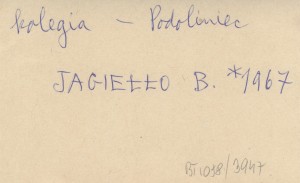 kolegia – Podoliniec
JAGIEŁŁO B. *1967
BT1098/3947